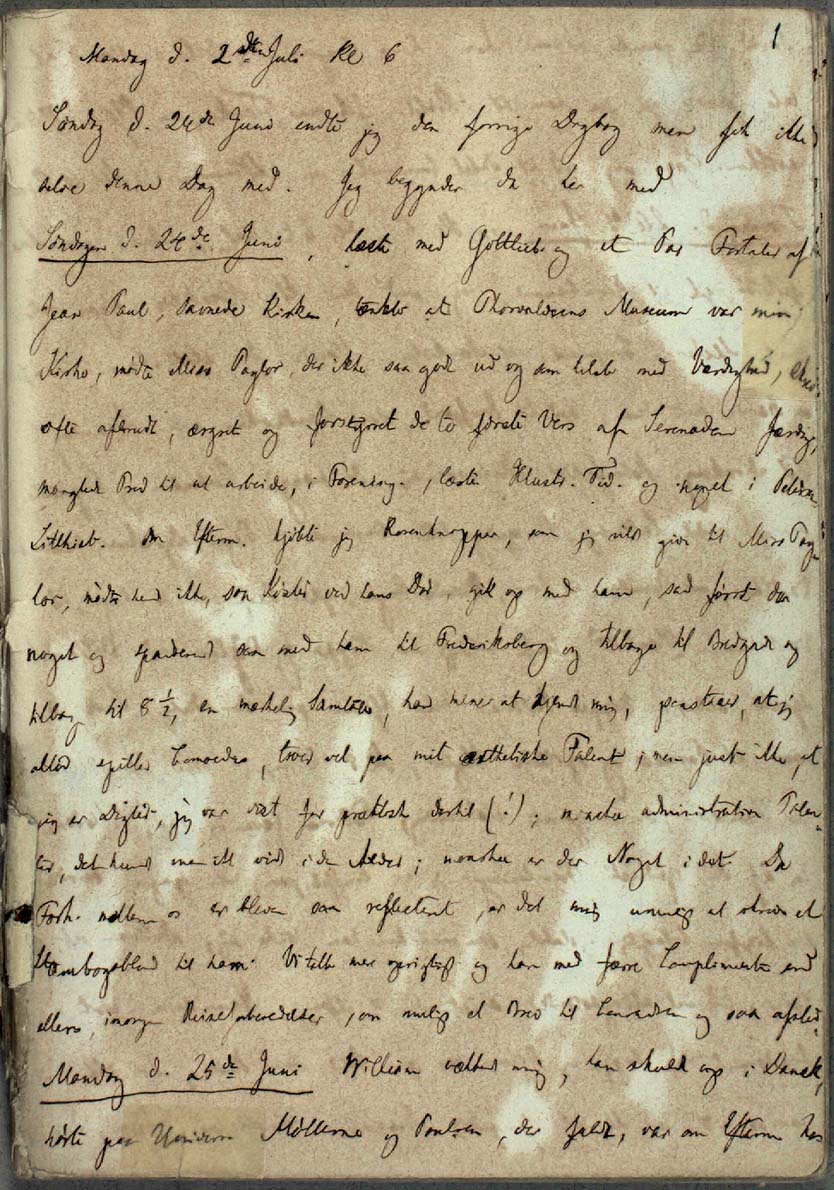 1
Mandag d. 2den Juli Kl 6
Søndag d. 24de Juni endte jeg den forrige Dagbog men fik ikke
selve denne Dag med. Jeg begynder da her med
Søndagen d. 24de Juni, læste med Gottlieb og et Par Fortaler af
Jean Paul, savnede Kirken, tænkte at Thorvaldsens Museum var min
Kirke, mødte Miss Taylor, der ikke saa godt ud og som talte med Værdighed,
ofte afbrudt, ærgret og forstyrret de to første Vers af Serenaden færdige,
manglede Brød til at arbeide, i Forening., læste Illustr. Tid. og i
Om Efterm. kjøbte jeg Rosenknopper, som jeg vilde give til Miss Tay
lor, mødte hende ikke, saa ved hans Dør, gik op med ham, sad først der
noget og spadserede saa med ham til Frederiksberg og tilbage til Bredgade og
tilbage til 8 ½, en mærkelig Samtale, han mener at kjende mig, paastaaer, at jeg
altid spiller Comoedie, troer vel paa mit æsthetiske Talent, men just ikke, at
jeg er Digter, jeg var vist for praktisk dertil (!); maaskee administrative Talen
ter, det kunde man ikke vide i den Alder; maaskee er der Noget i det. Da
Forh. mellem os er bleven saa reflecteret, er det mig umuligt at skrive et
Stambogsblad til ham. Vi talte mere oprigtigt og han med færre Complimenter end
ellers, imorgen Reiseforberedelser, om muligt et Brev til og saa afsted.
Mandag d. 25de Juni William vækkede mig, han skulde op i Dansk,
hørte paa Møllerne og Poulsen, der faldt, var om Efterm hos